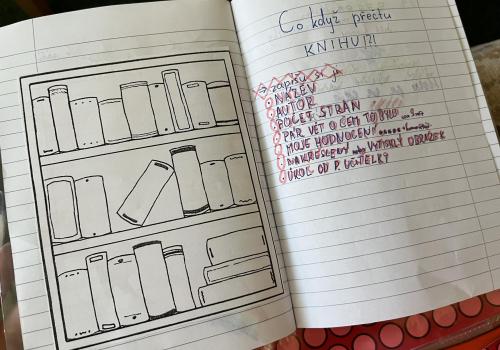 Co když přečtu
KNIHU?!
→ zapíšu si
NÁZEV
AUTOR
POČET STRAN
PÁR VĚT O ČEM TO BYLO
MOJE HODNOCENÍ
NAKRESLENÝ VYTISKLÝ OBRÁZEK
ÚKOL OD P. UČITELKY